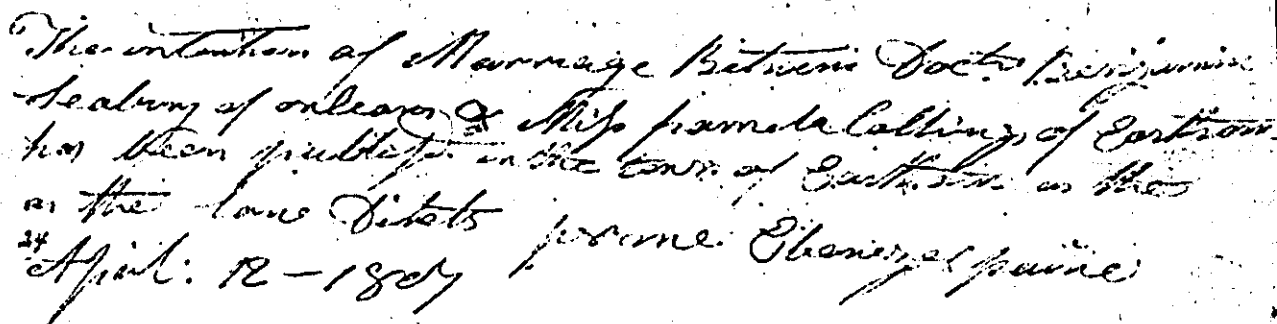 The intention of Marriage Bitwene Doctr Benjamin
Seabury of orleans & Miss pamela Collings of Eastham
has been publisht in the town of Eastham as the
as the Law Ditets
April: 12 - 1807 prome Ebenezer paine
24